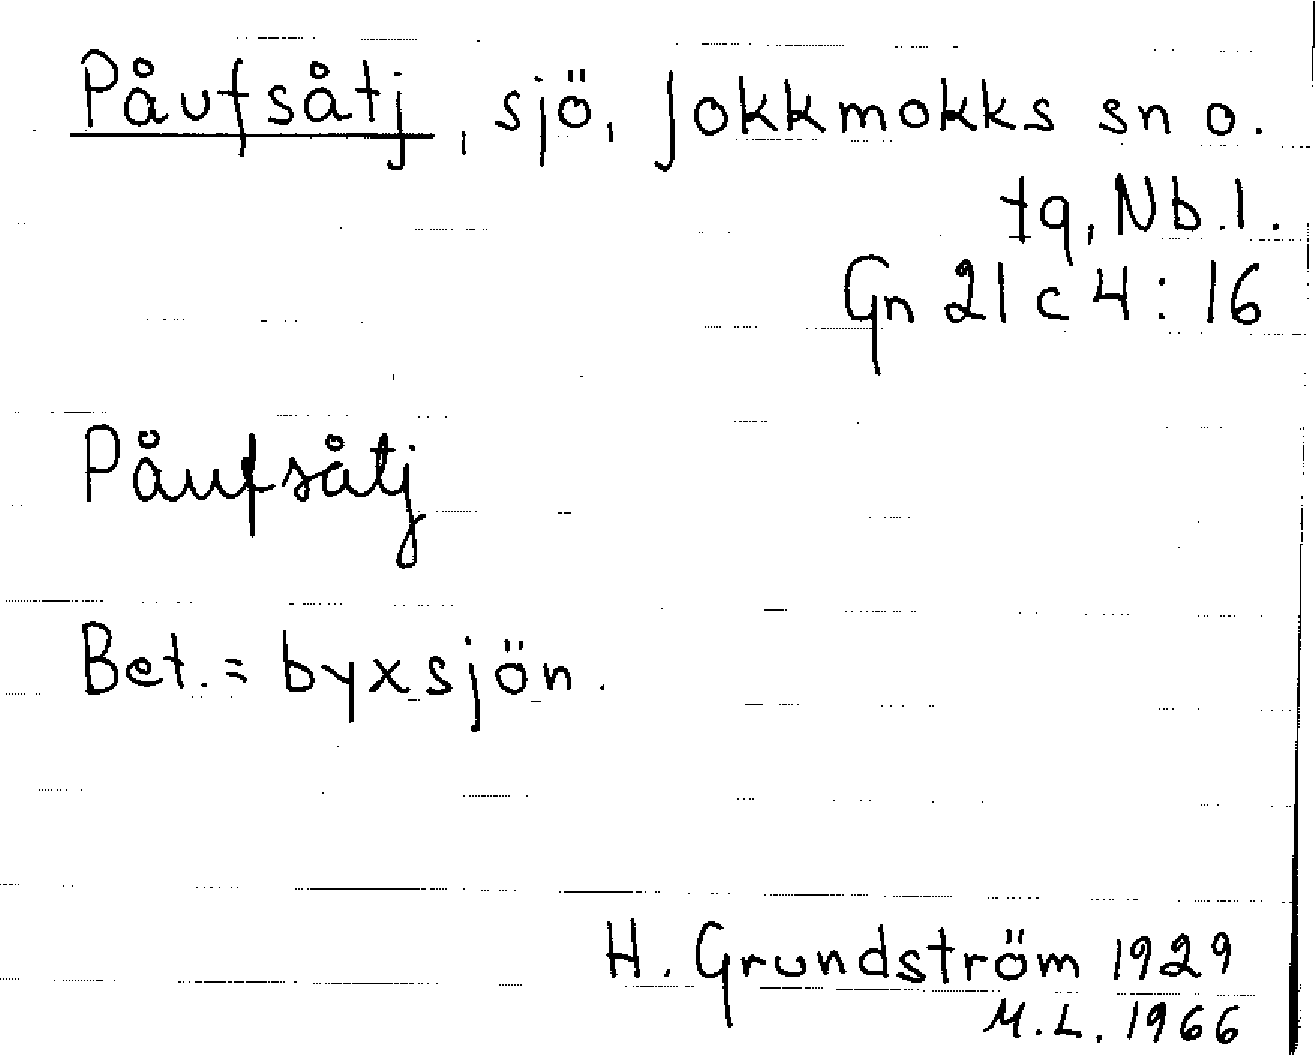 Påufsåtj, sjö, Jokkmokks sn o.
tg, Nb.l.
Gn 21 c 4: 16
Påufsåtj
Bet. = byxsjön.
H. Grundström 1929
M.L. 1966